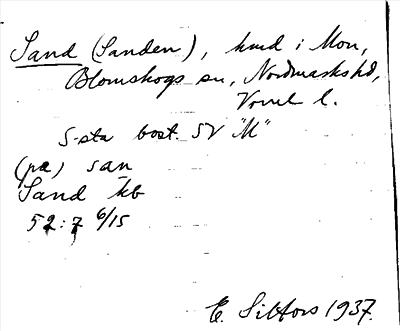 Sand (Sanden), hmd i Mon,
Blomskogs sn, Nordmarks hd,
Värml l.
S-sta bost. SV "M"
(pa) san
Sand kb
52:7 6/15
E. Sibfors 1937.